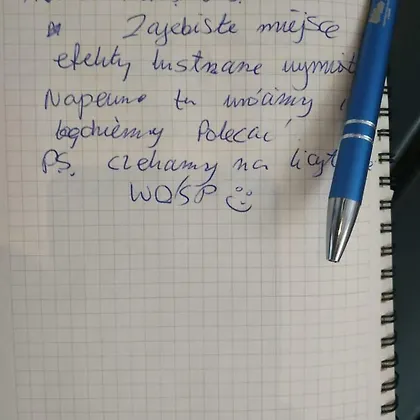 Zajebiste miejsce
efekty lustrzane wymiat
Napewno tu wrócimy i
będziemy Polecać
PS. czekamy na licyt
WOŚP